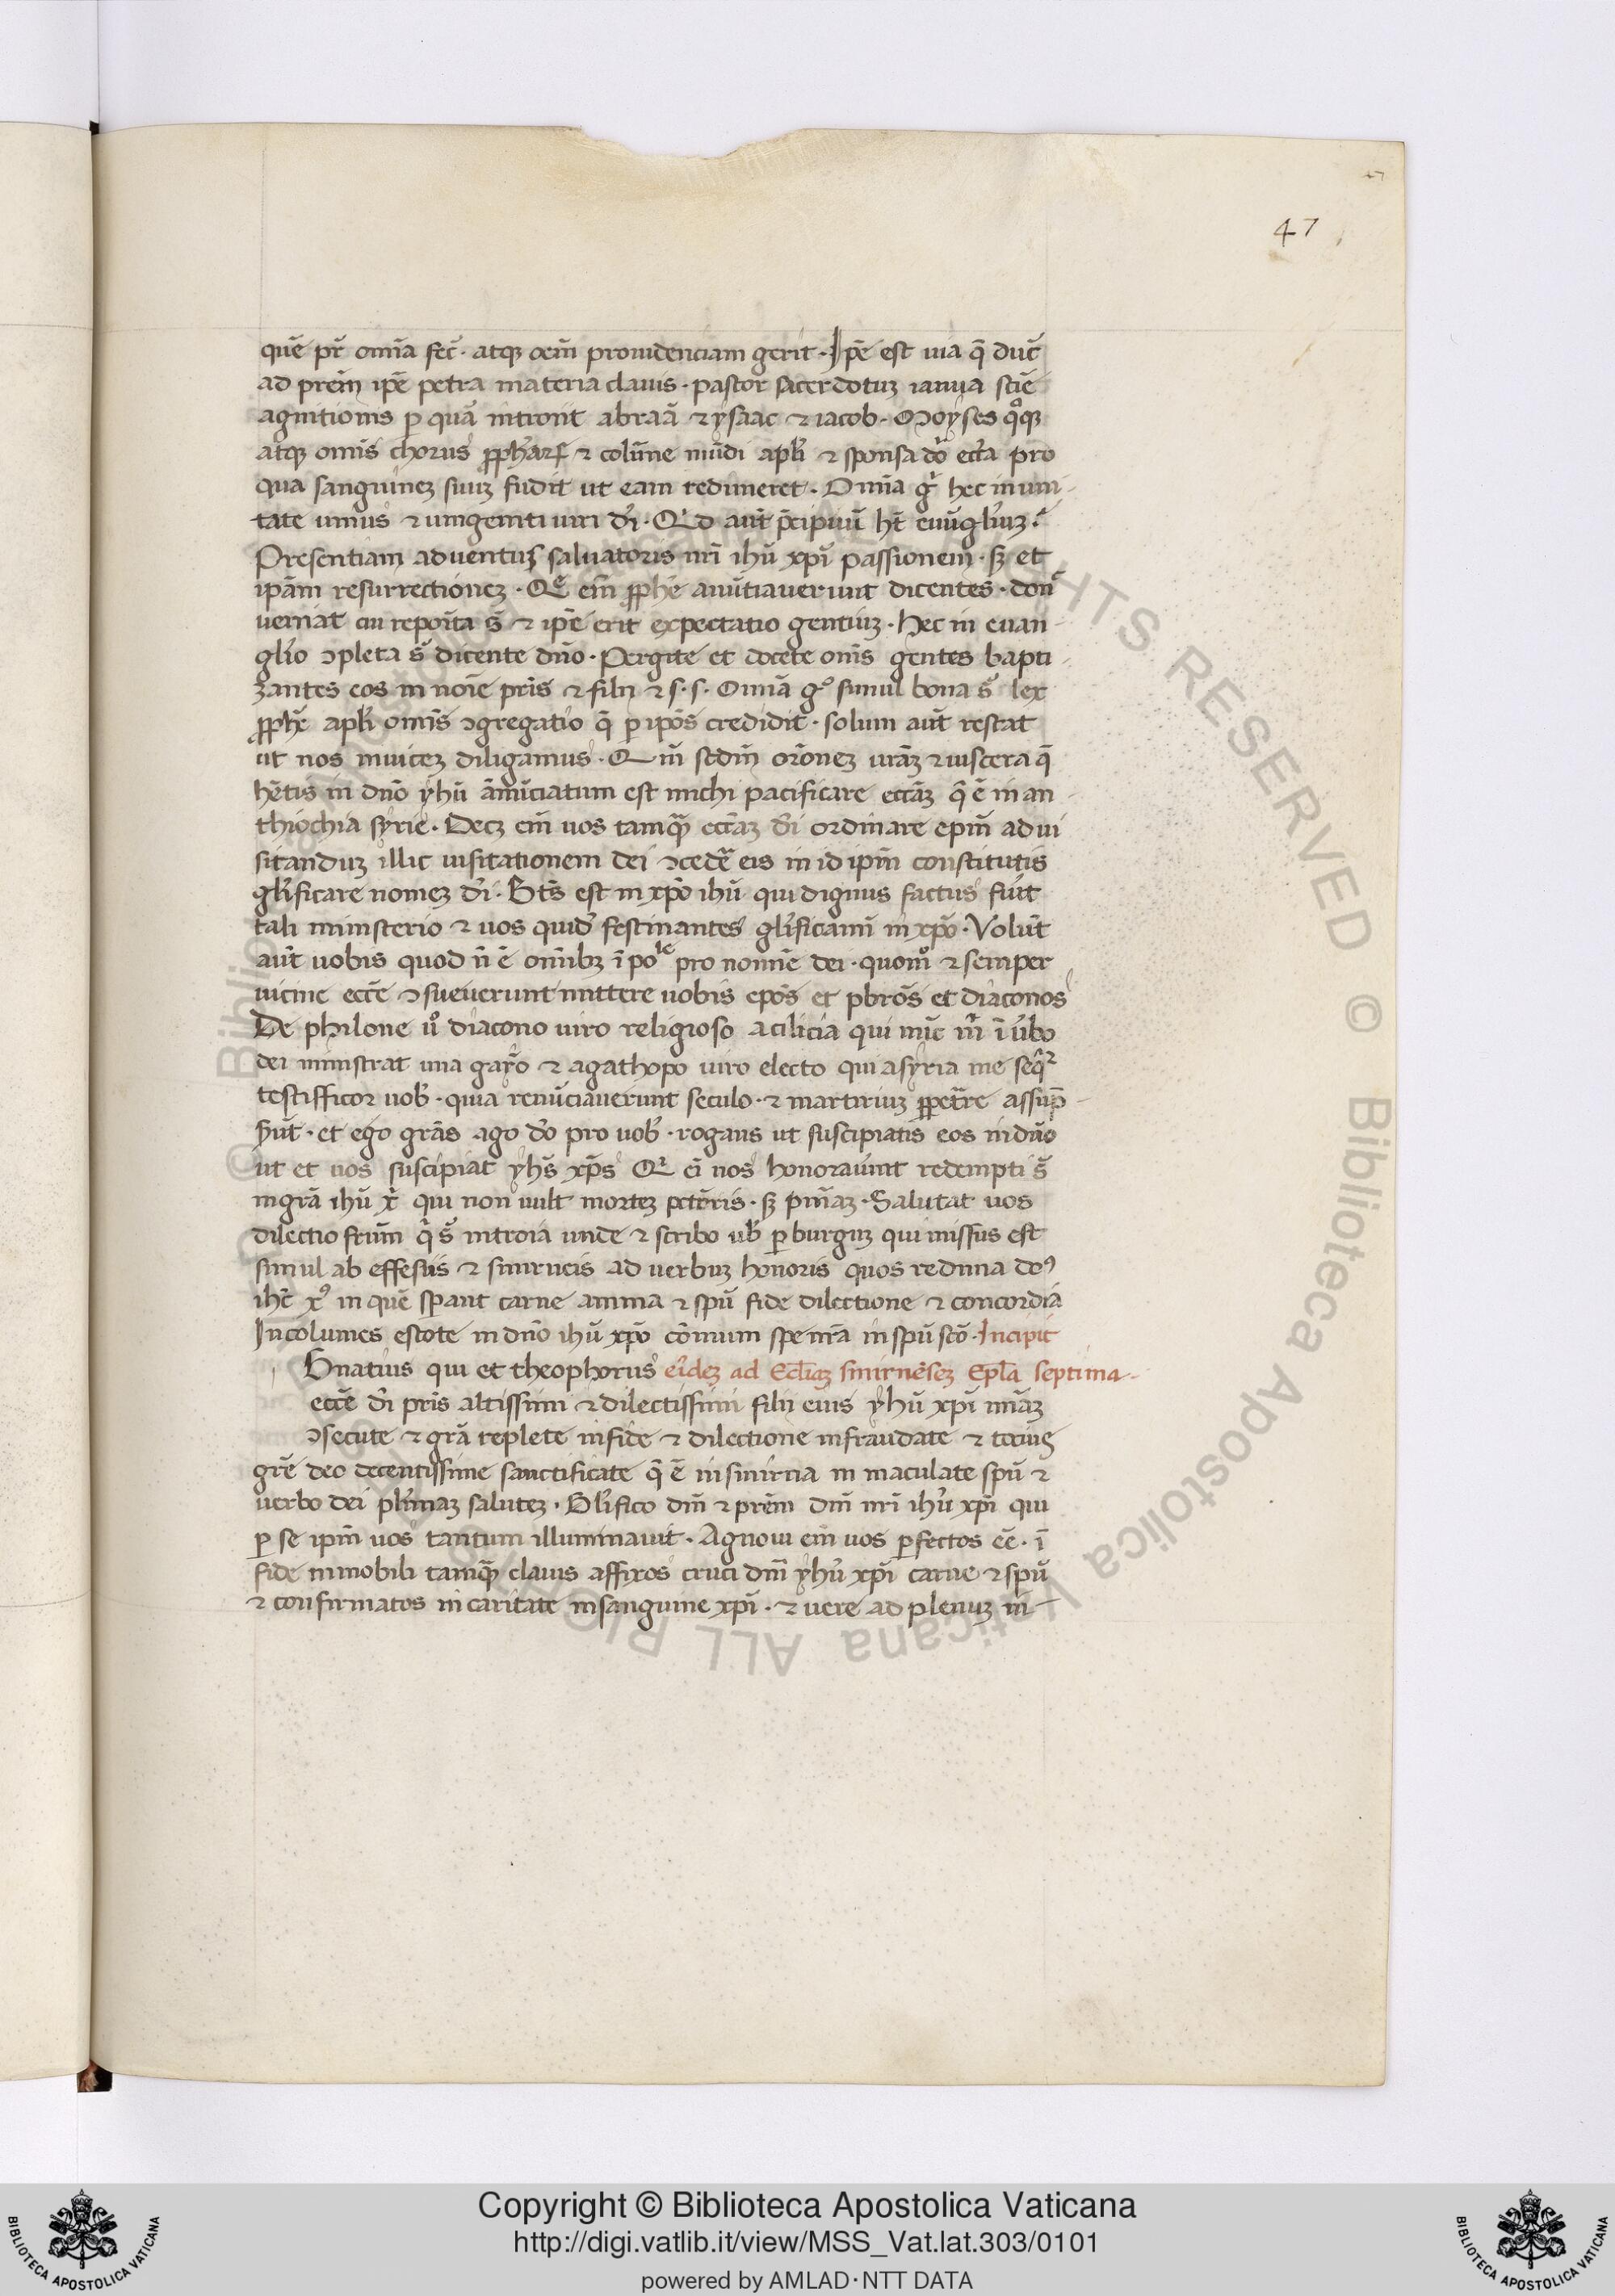 47
quē pr̄ omīa fec̄. atqꝫ oēm prouidenciam gerit. Ip̄e est uia q̄ duc̄
ad prēm ip̄e petra materia clauis. pastor sacerdotuꝫ ianua sciē
agnitionis ꝑ quā introit abraā ⁊ ysaac ⁊ iacob. Moyses qͦqꝫ
atqꝫ omīs chorus ꝓphar̄ ⁊ colūne mūdi apl̄i ⁊ sponsa dō ecc̄a pro
qua sanguineꝫ suuꝫ fudit ut eam redimeret. Omīa gͥ hec in uni-
tate unius ⁊ unigeniti uiri dī. Qͥd aūt p̄cipuū hēt euūgliuꝫ.
Presentiam aduentus saluatoris nrī ihū xpī passionem. sꝫ et
ipām resurrectioneꝫ. Qͤ em̄ ꝓphē anūtiauerunt dicentes. don̄
ueniat cui repoīta s̄ ⁊ ip̄e erit expectatio gentiuꝫ. Hec in euan-
glīo ꝯpleta s̄ dicente dn̄o. Pergite et docete om̄s gentes bapti-
zantes eos in noīe pris̄ ⁊ filii ⁊ s. s. Omīa gͦ simul bona s̄ lex
ꝓphē apl̄i omīs ꝯgregatio q̄ ꝑ ipōs credidit. solum aūt restat
ut nos inuiceꝫ diligamus. Qm̄ scdm̄ orōneꝫ urāꝫ ⁊ uiscera q̄
hētis in dn̄o yhū ānūciatum est michi pacificare ecc̄aꝫ q̄ ē in an-
thiochia syrie. Decꝫ em̄ uos tamqꝫ ecc̄aꝫ dī ordinare ep̄m ad ui
sitanduꝫ illic uisitationem dei ꝯcedē eis in id ip̄m constitutis
glīficare nomeꝫ dī. Bt̄s est in xp̄o ihū qui dignus factus fuīt
tali ministerio ⁊ uos quid̄ festinantes glīficamī in xp̄o. Volūt
aūt uobis quod n̄ ē omībꝫ īpoˡᵉ pro nomīe dei. quomͦ ⁊ semper
uicine ecc̄e ꝯsueuerunt mittere uobis epōs et pbrōs et diaconos
De philone uͦ diacono uiro religioso a cilicia qui nūc m̄ ī ūbo
dei ministrat una gayo ⁊ agathopo uiro electo qui a syria me seqr̄
testifficor uob̄. quia renūciauerunt seculo. ⁊ martiriuꝫ ꝑpetr̄e assūp-
sūt. et ego grās ago dō pro uob̄. rogans ut suscipiatis eos in dn̄o
ut et uos suscipiat yhs̄ xp̄s Qͥ em̄ nos honoraūnt redempti s̄
in grā ihū xͥ qui non uult morteꝫ pctōris. sꝫ pnīaꝫ. Salutat uos
dilectio frūm q̄ s̄ in troia unde ⁊ scribo ub̄ ꝑ burguꝫ qui missus est
simul ab effesiis ⁊ smirneis ad uerbuꝫ honoris quos redima doˢ
ihc̄ xˢ in quē spant carne anima ⁊ spū fide dilectione ⁊ concordia
Incolumes estote in dn̄o ihū xp̄o cōmuni spe nr̄a in spū scō. Incipit
Gnatius qui et theophorus eīdeꝫ ad Ecl̄iaꝫ smirnēseꝫ Epl̄a septima-
ecc̄e dī pris̄ altissimi ⁊ dilectissimi filii eius yhū xpī mīaꝫ
ꝯsecute ⁊ grā replete in fide ⁊ dilectione infraudate ⁊ tocius
grē deo decentissime sanctificate q̄ ē in smirna in maculate spū ⁊
uerbo dei plīmaꝫ saluteꝫ. Glīfico dm̄ ⁊ prēm dm̄ nrī ihū xpī qui
ꝑ se ip̄m uos tantum illuminauit. Agnoui em̄ uos ꝑfectos eē. ī
fide immobili tamqꝫ clauis affixos cruci dnī yhū xpī carne ⁊ spū
⁊ confirmatos in caritate in sanguine xpī. ⁊ uere ad plenuꝫ in-
Copyright © Biblioteca Apostolica Vaticana
http://digi.vatlib.it/view/MSS_Vat.lat.303/0101
powered by AMLAD · NTT DATA